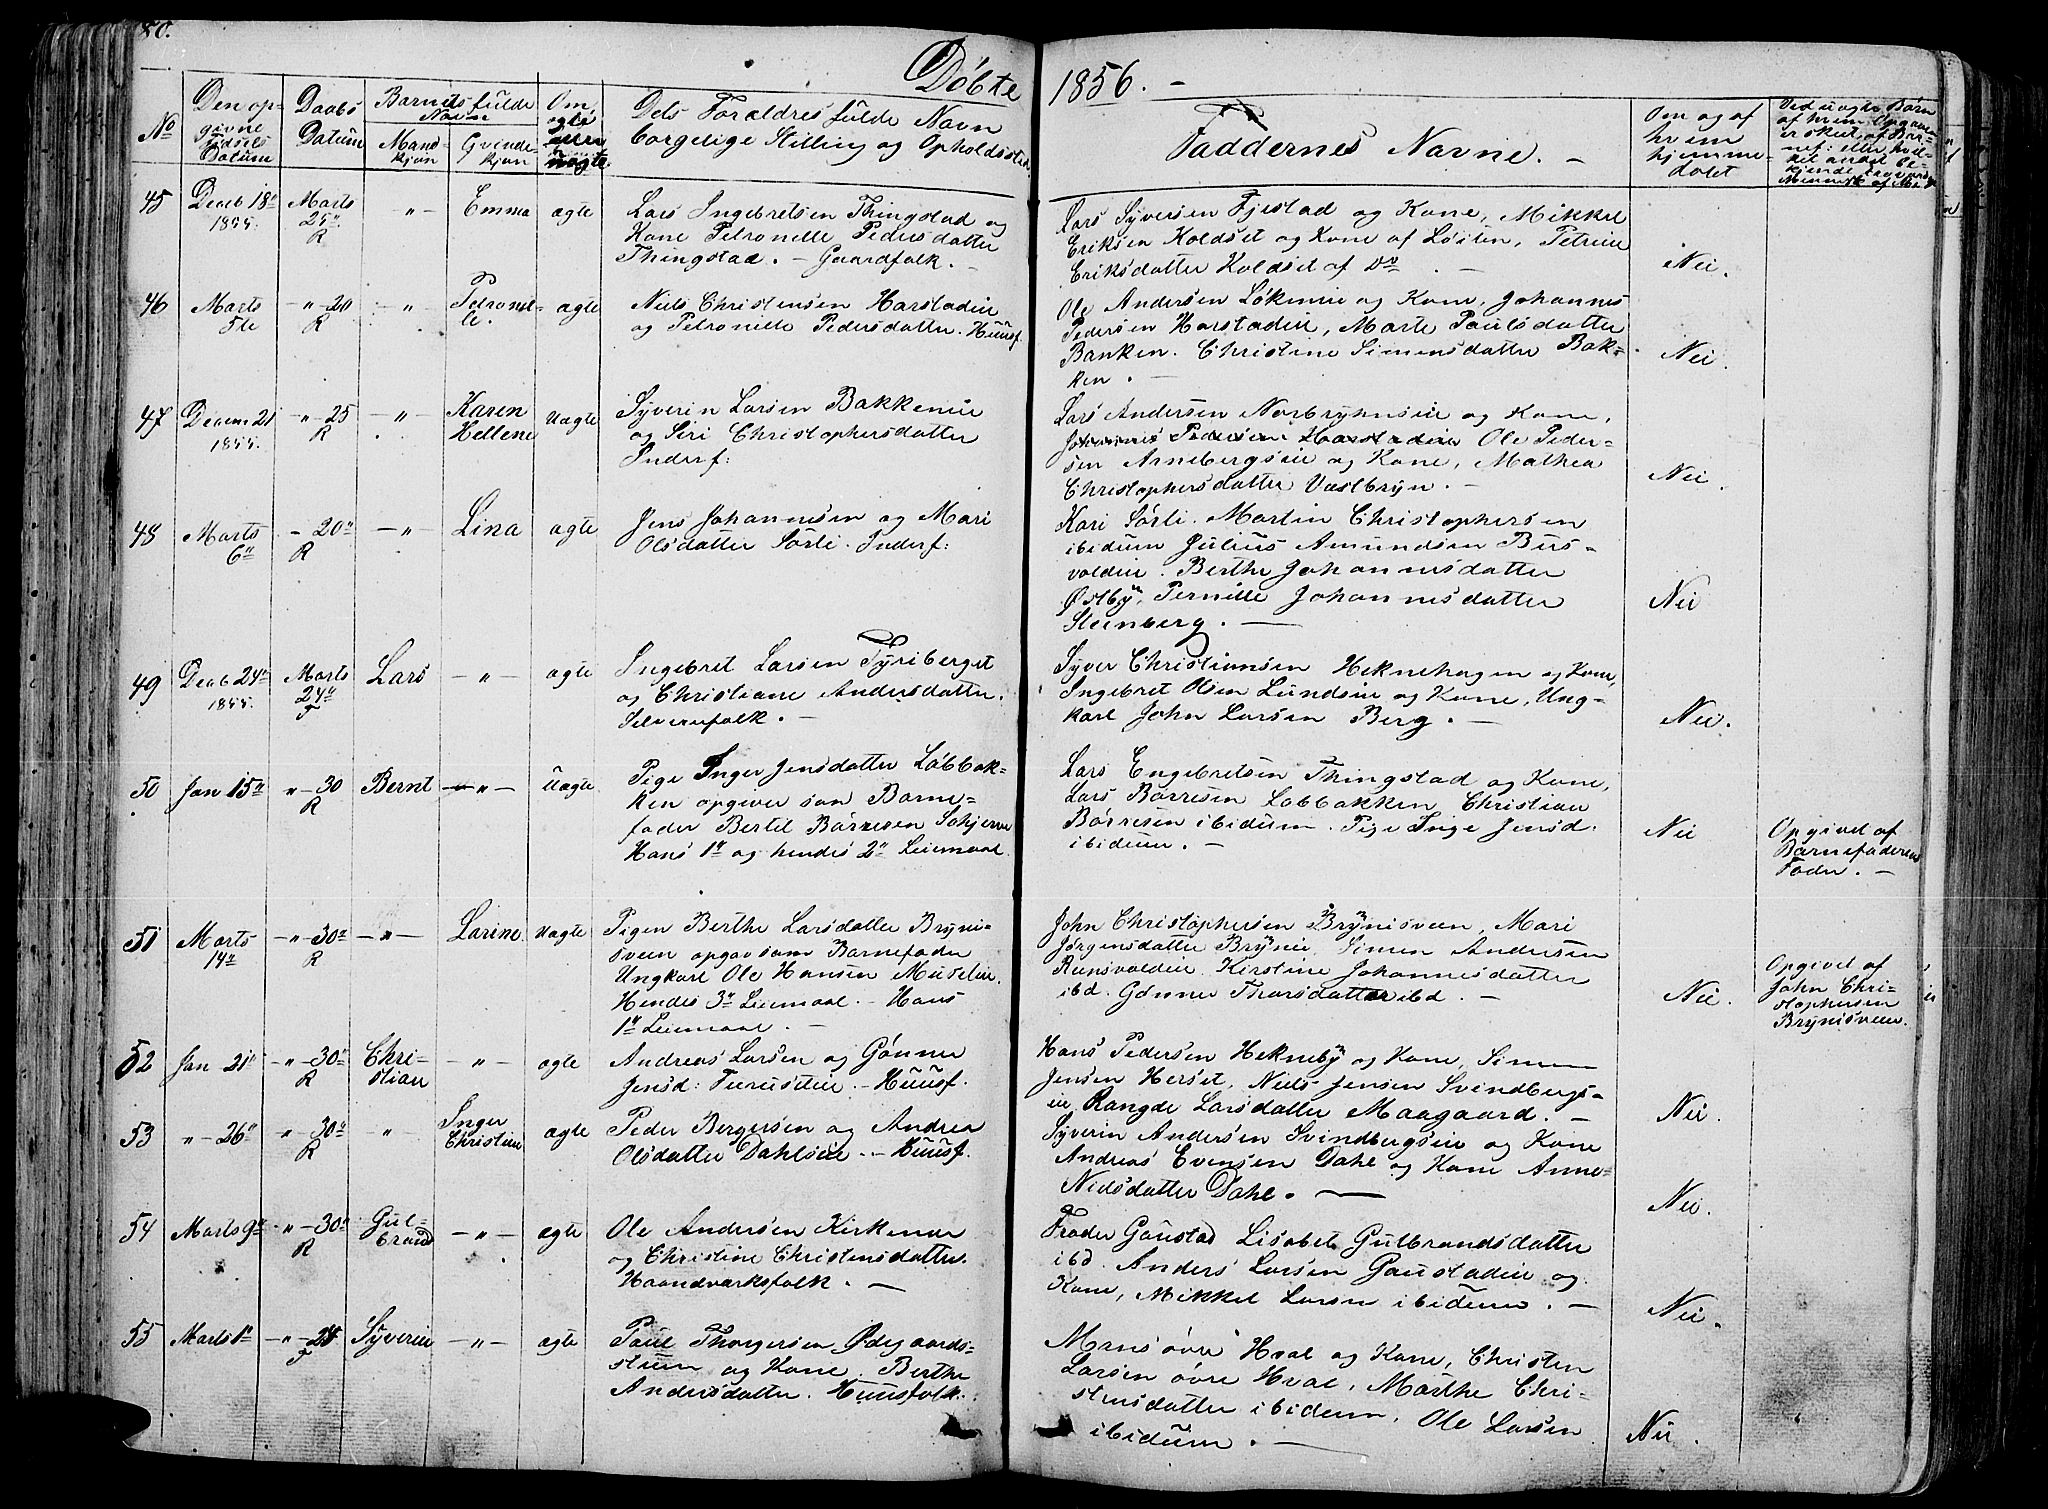 Döbte 1856. -
No
Den op-
givne
Fødsels
Datum
Daabs
Datum
Barnets fulde
Navne
Mand-
kjøn
Qvinde-
kjøn
Om
ægte
eller
uægte
Dets Forældres fulde Navn
borgelige Stilling og Opholdssted
Faddernes Navne. -
Om og af
hvem
hjemme-
døbt
45 Decb 18" 1855. Marts 25" R -"- Emma ægte
Lars Ingebretsen Thingstad og
Kone Petronelle Pedersdatter
Thingstad. - Gaardfolk. -
Lars Syversen Fjestad og Kone, Mikkel
Eriksen Koldset og Kone af Løiten, Petrine
Eriksdatter Koldset af Do. -
Nei.
46 Marts 5te -"-20 R -"- Petronel-
le. ægte
Niels Christensen Harstadeie
og Petronelle Pedersdatter. Huusf.
Ole Andersen Løkeneie og Kone, Johannes
Pedersen Harstadeie, Marte Paulsdatter
Banken. Christine Simensdatter Bak-
ken. -
Nei.
47 Decem 21 1855. "-25 R -"- Karen
Hellene Uægte
Syverin Larsen Bakkeneie
og Siri Christophersdatter
Inderf:
Lars Andersen Norbryhnseie og Kone,
Johannes Pedersen Haarstadeie Ole Peder-
sen Arnebergseie og Kone, Mathea
Christophersdatter Vestbryn. -
Nei.
48 Marts 6" - 20" R -"- Lina ægte
Jens Johannesen og Mari
Olsdatter Sørli. Inderf:
Kari Sørli. Martin Christophersen
ibidum Julius Amundsen Bus-
voldeie. Berthe Johannesdatter
Østby, Pernille Johannesdatter
Steenberg. -
Nei
49 Decb 24" 1855. Marts 24" F Lars -"- ægte
Ingebret Larsen Fyriberget
og Christiane Andersdatter.
Selveierfolk. -
Syver Christiansen Heknehagen og Kone,
Ingebret Olsen Lundseie og Kone, Ung-
karl John Larsen Berg. -
Nei.
50 Jan 15" "-30 R Bernt -"- Uægte
Pige Inger Jensdatter Løbbak-
ken opgiver som Barne-
fader Bertil Børresen
Hans 1" og hendes 2" Leiermaal.
Lars Engebretsen Thingstad og Kone,
Lars Børresen Løbbakken, Christian
Børresen ibidum. Pige Inge Jensd.
ibidum. -
Nei
Opgivet af
Barnefaderens
Fader. -
51 Marts 14" -"-30" R -"- Larine Uægte
Pigen Berthe Larsdatter Bryni-
sveen opgav som Barnefader
Ungkarl Ole Hansen Muselie.
Hendes 3" Leiermaal. - Hans
1" Leiermaal. -
John Christophersen Brynisveen, Mari
Jørgensdatter Bryneie Simen Andersen
Runsvoldeie. Kirstine Johannesdatter
ibd. Gønner Thorsdatter ibd. -
Nei.
Opgivet af
John Chri-
stophersen
Brynisveen.
52 Jan 21" -"-30" R Chri-
stian -"- ægte
Andreas Larsen og Gønner
Jensd: Furuseteie. - Huusf.
Hans Pedersen Hekneby og Kone, Simen
Jensen Herset, Niels Jensen Svindbergs-
eie Rangde Larsdatter Maagaard. -
Nei.
53 "-26" "-30" R " Inger
Christine ægte
Peder Bergersen og Andrea
Olsdatter Dahlseie. - Huusf.
Syverin Andersen Svindbergseie og Kone
Andreas Evensen Dahl og Kone Anne
Nielsdatter Dahl. -
Nei.
54 Marts 9" "-30" R Gul-
brand -"- ægte
Ole Andersen Kirkenær
og Christine Christensdatter.
Haandværksfolk. -
Frøder Gaustad Lisabet Gulbrandsdatter
ibd. Anders Larsen Gaustadeie og
Kone, Mikkel Larsen ibidum. -
Nei.
55 Marts 1" -"-24 F Syverin -"- ægte
Paul Thorgersen Ødegaards-
stuen og Kone Berthe
Andersdatter. Huusfolk.
Mons øvre Hval og Kone, Christen
Larsen øvre Hval, Marthe Chri-
stensdatter ibidum, Ole Larsen
ibidum. -
Nei.